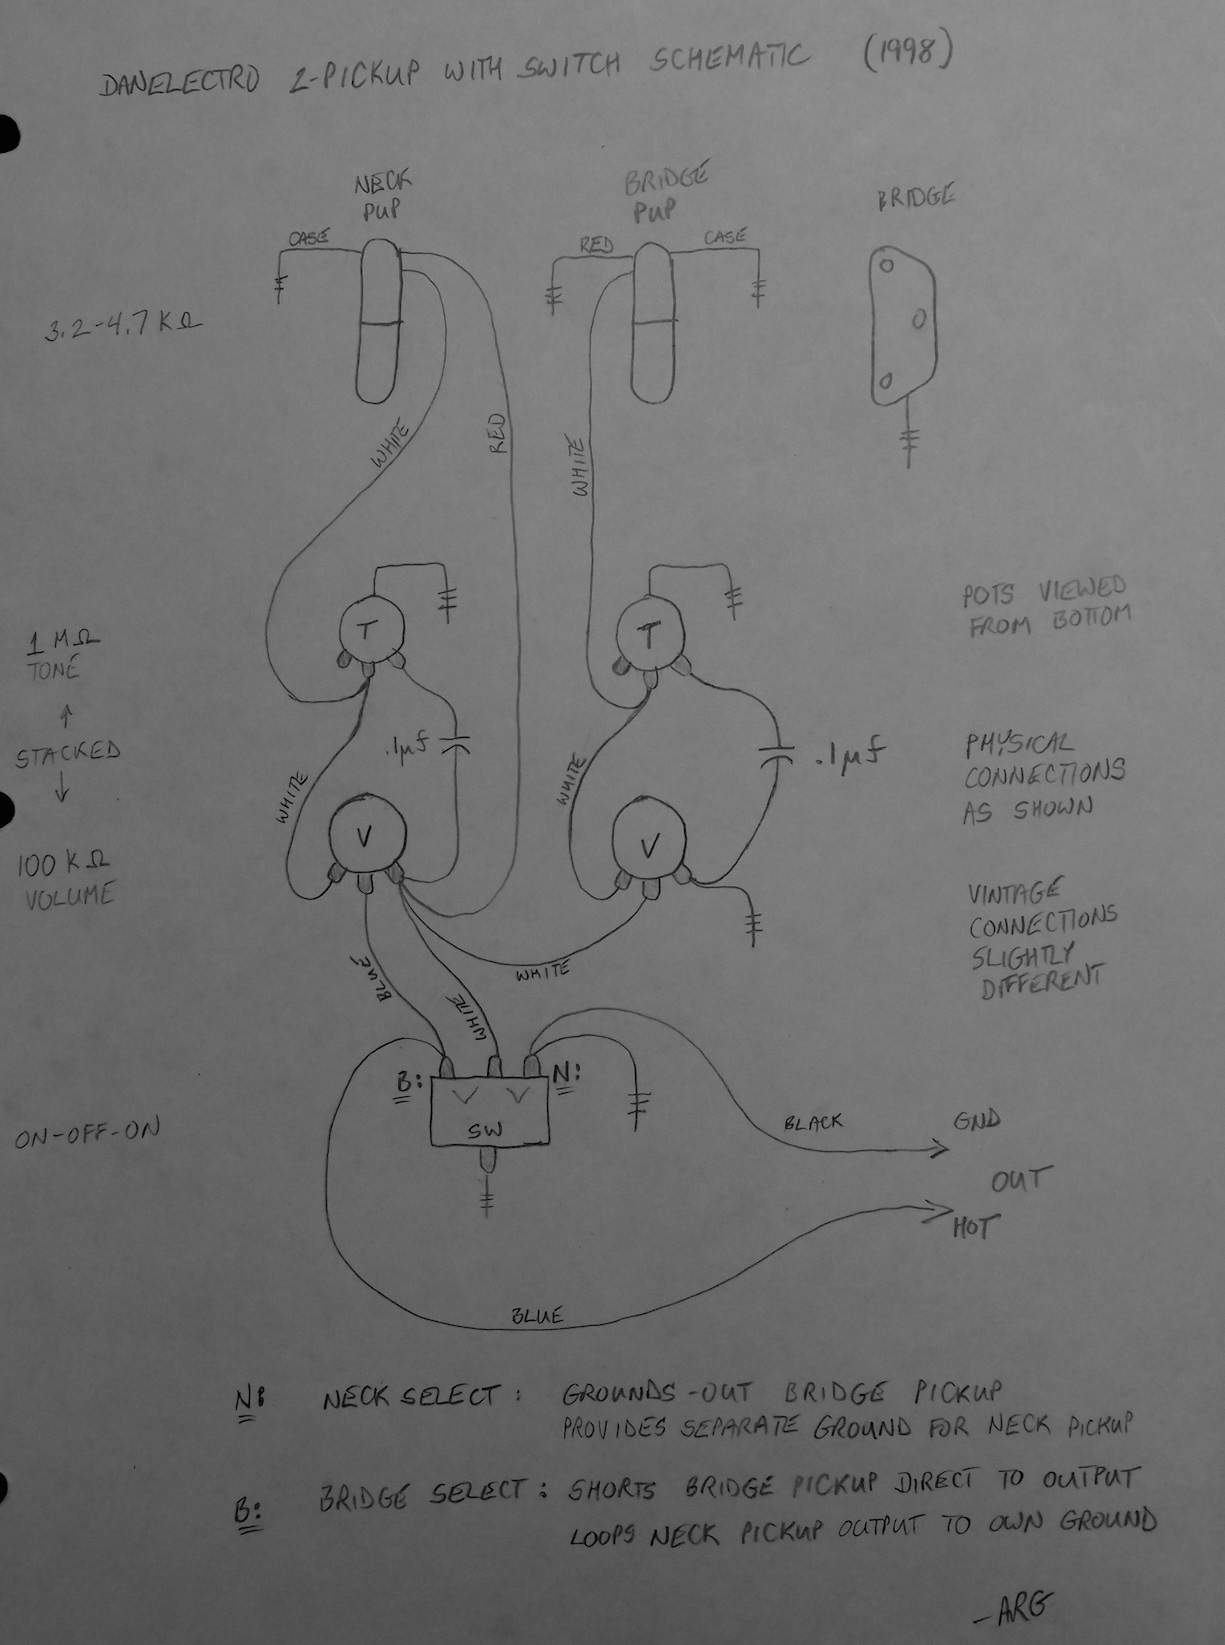 DANELECTRO 2-PICKUP WITH SWITCH SCHEMATIC (1998)
NECK
PUP
BRIDGE
PUP
BRIDGE
CASE
RED
CASE
3.2-4.7 KΩ
WHITE
RED
WHITE
POTS VIEWED
FROM BOTTOM
T
T
1 MΩ
TONE
↑
STACKED
↓
100 KΩ
VOLUME
.1µf
.1µf
PHYSICAL
CONNECTIONS
AS SHOWN
WHITE
WHITE
V
V
VINTAGE
CONNECTIONS
SLIGHTLY
DIFFERENT
BLUE
WHITE
WHITE
B:
N:
SW
ON-OFF-ON
BLACK
GND
OUT
HOT
BLUE
N: NECK SELECT: GROUNDS-OUT BRIDGE PICKUP
PROVIDES SEPARATE GROUND FOR NECK PICKUP
B: BRIDGE SELECT: SHORTS BRIDGE PICKUP DIRECT TO OUTPUT
LOOPS NECK PICKUP OUTPUT TO OWN GROUND
-ARG